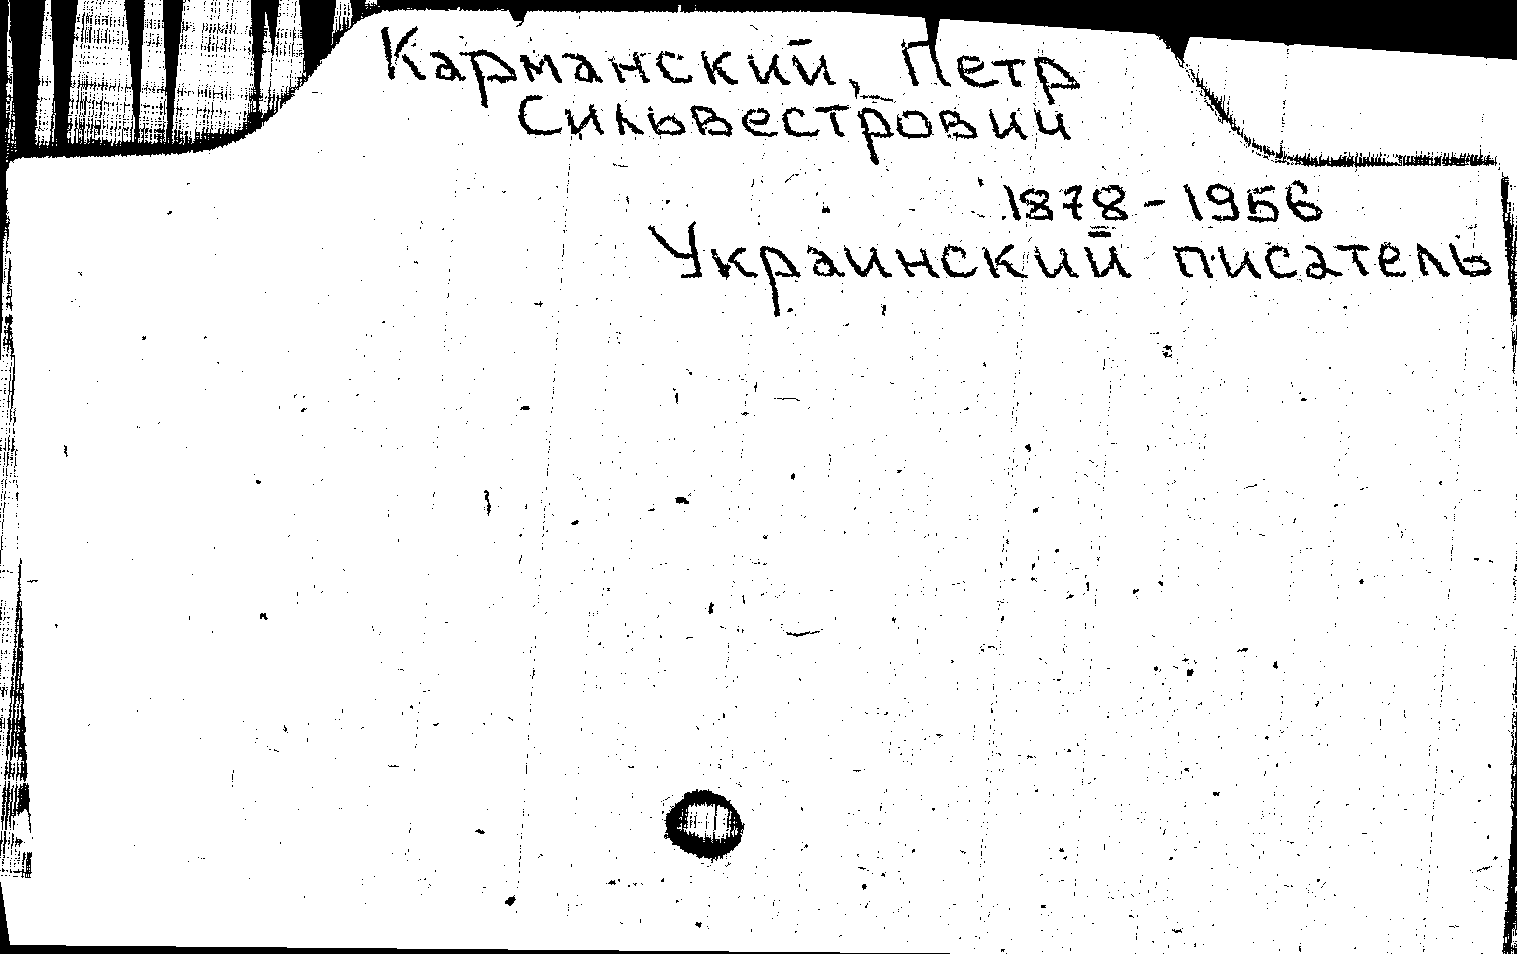 Карманский, Петр
Сильвестрович
1878-1956
Украинский писатель